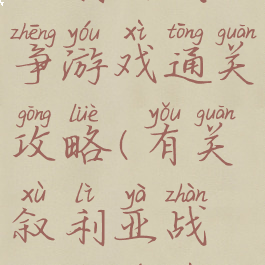 zhēng yóu xì tōng guān
争游戏通关
gōng lüè yǒu guān
攻略(有关
xù lì yà zhàn
叙利亚战